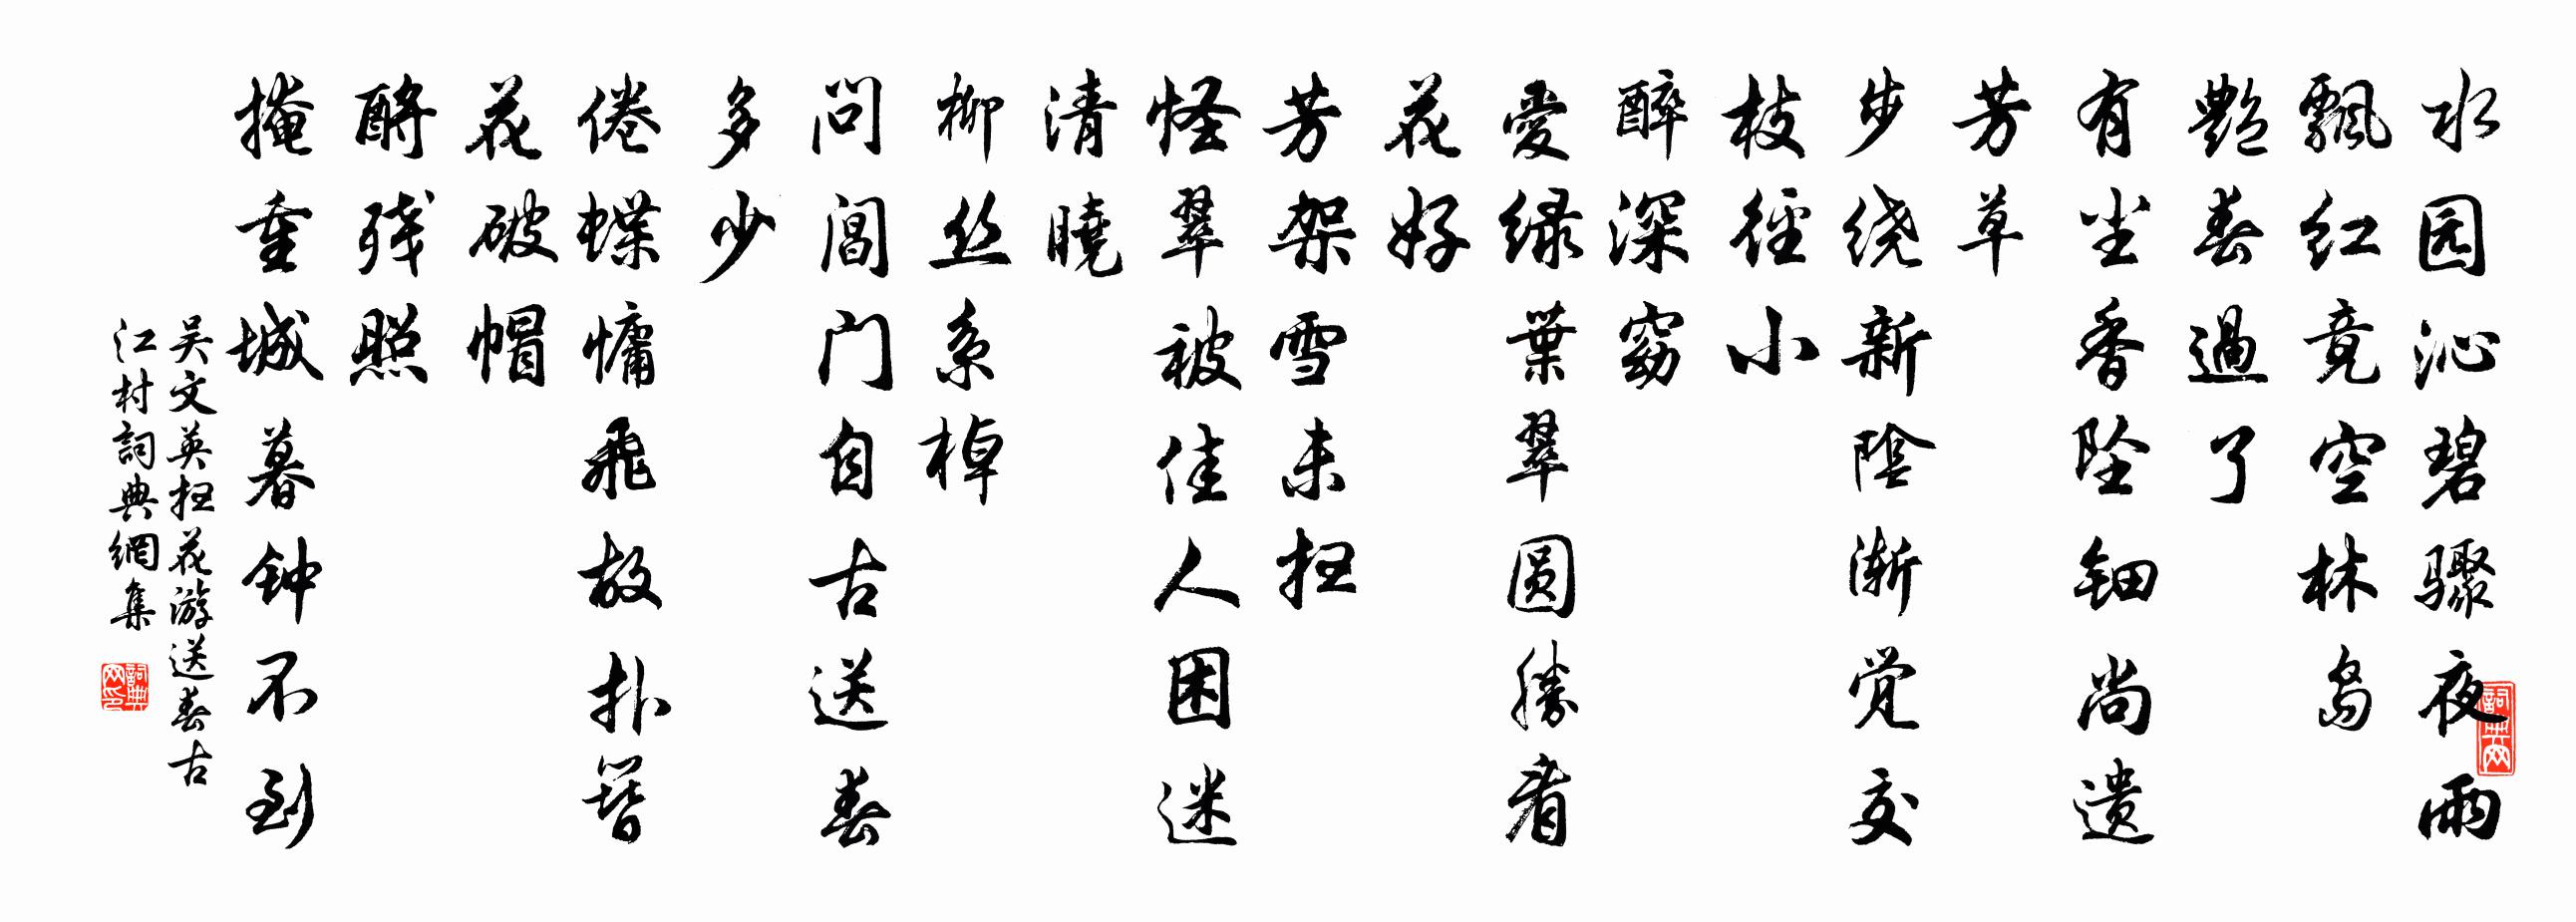 水园沁碧骤夜雨
飘红竟空林岛
艷春過了
有尘香坠钿尚遗
芳草
步绕新陰渐觉交
枝徑小
醉深窈
愛绿葉翠圆勝看
花好
芳架雪未扫
怪翠被佳人困迷
清曉
柳丝系棹
问阊门自古送春
多少
倦蝶慵飛故扑簪
花破帽
酹残照
掩重城暮钟不到
吴文英扫花游送春古
江村詞典網集
詞典网
詞典网印